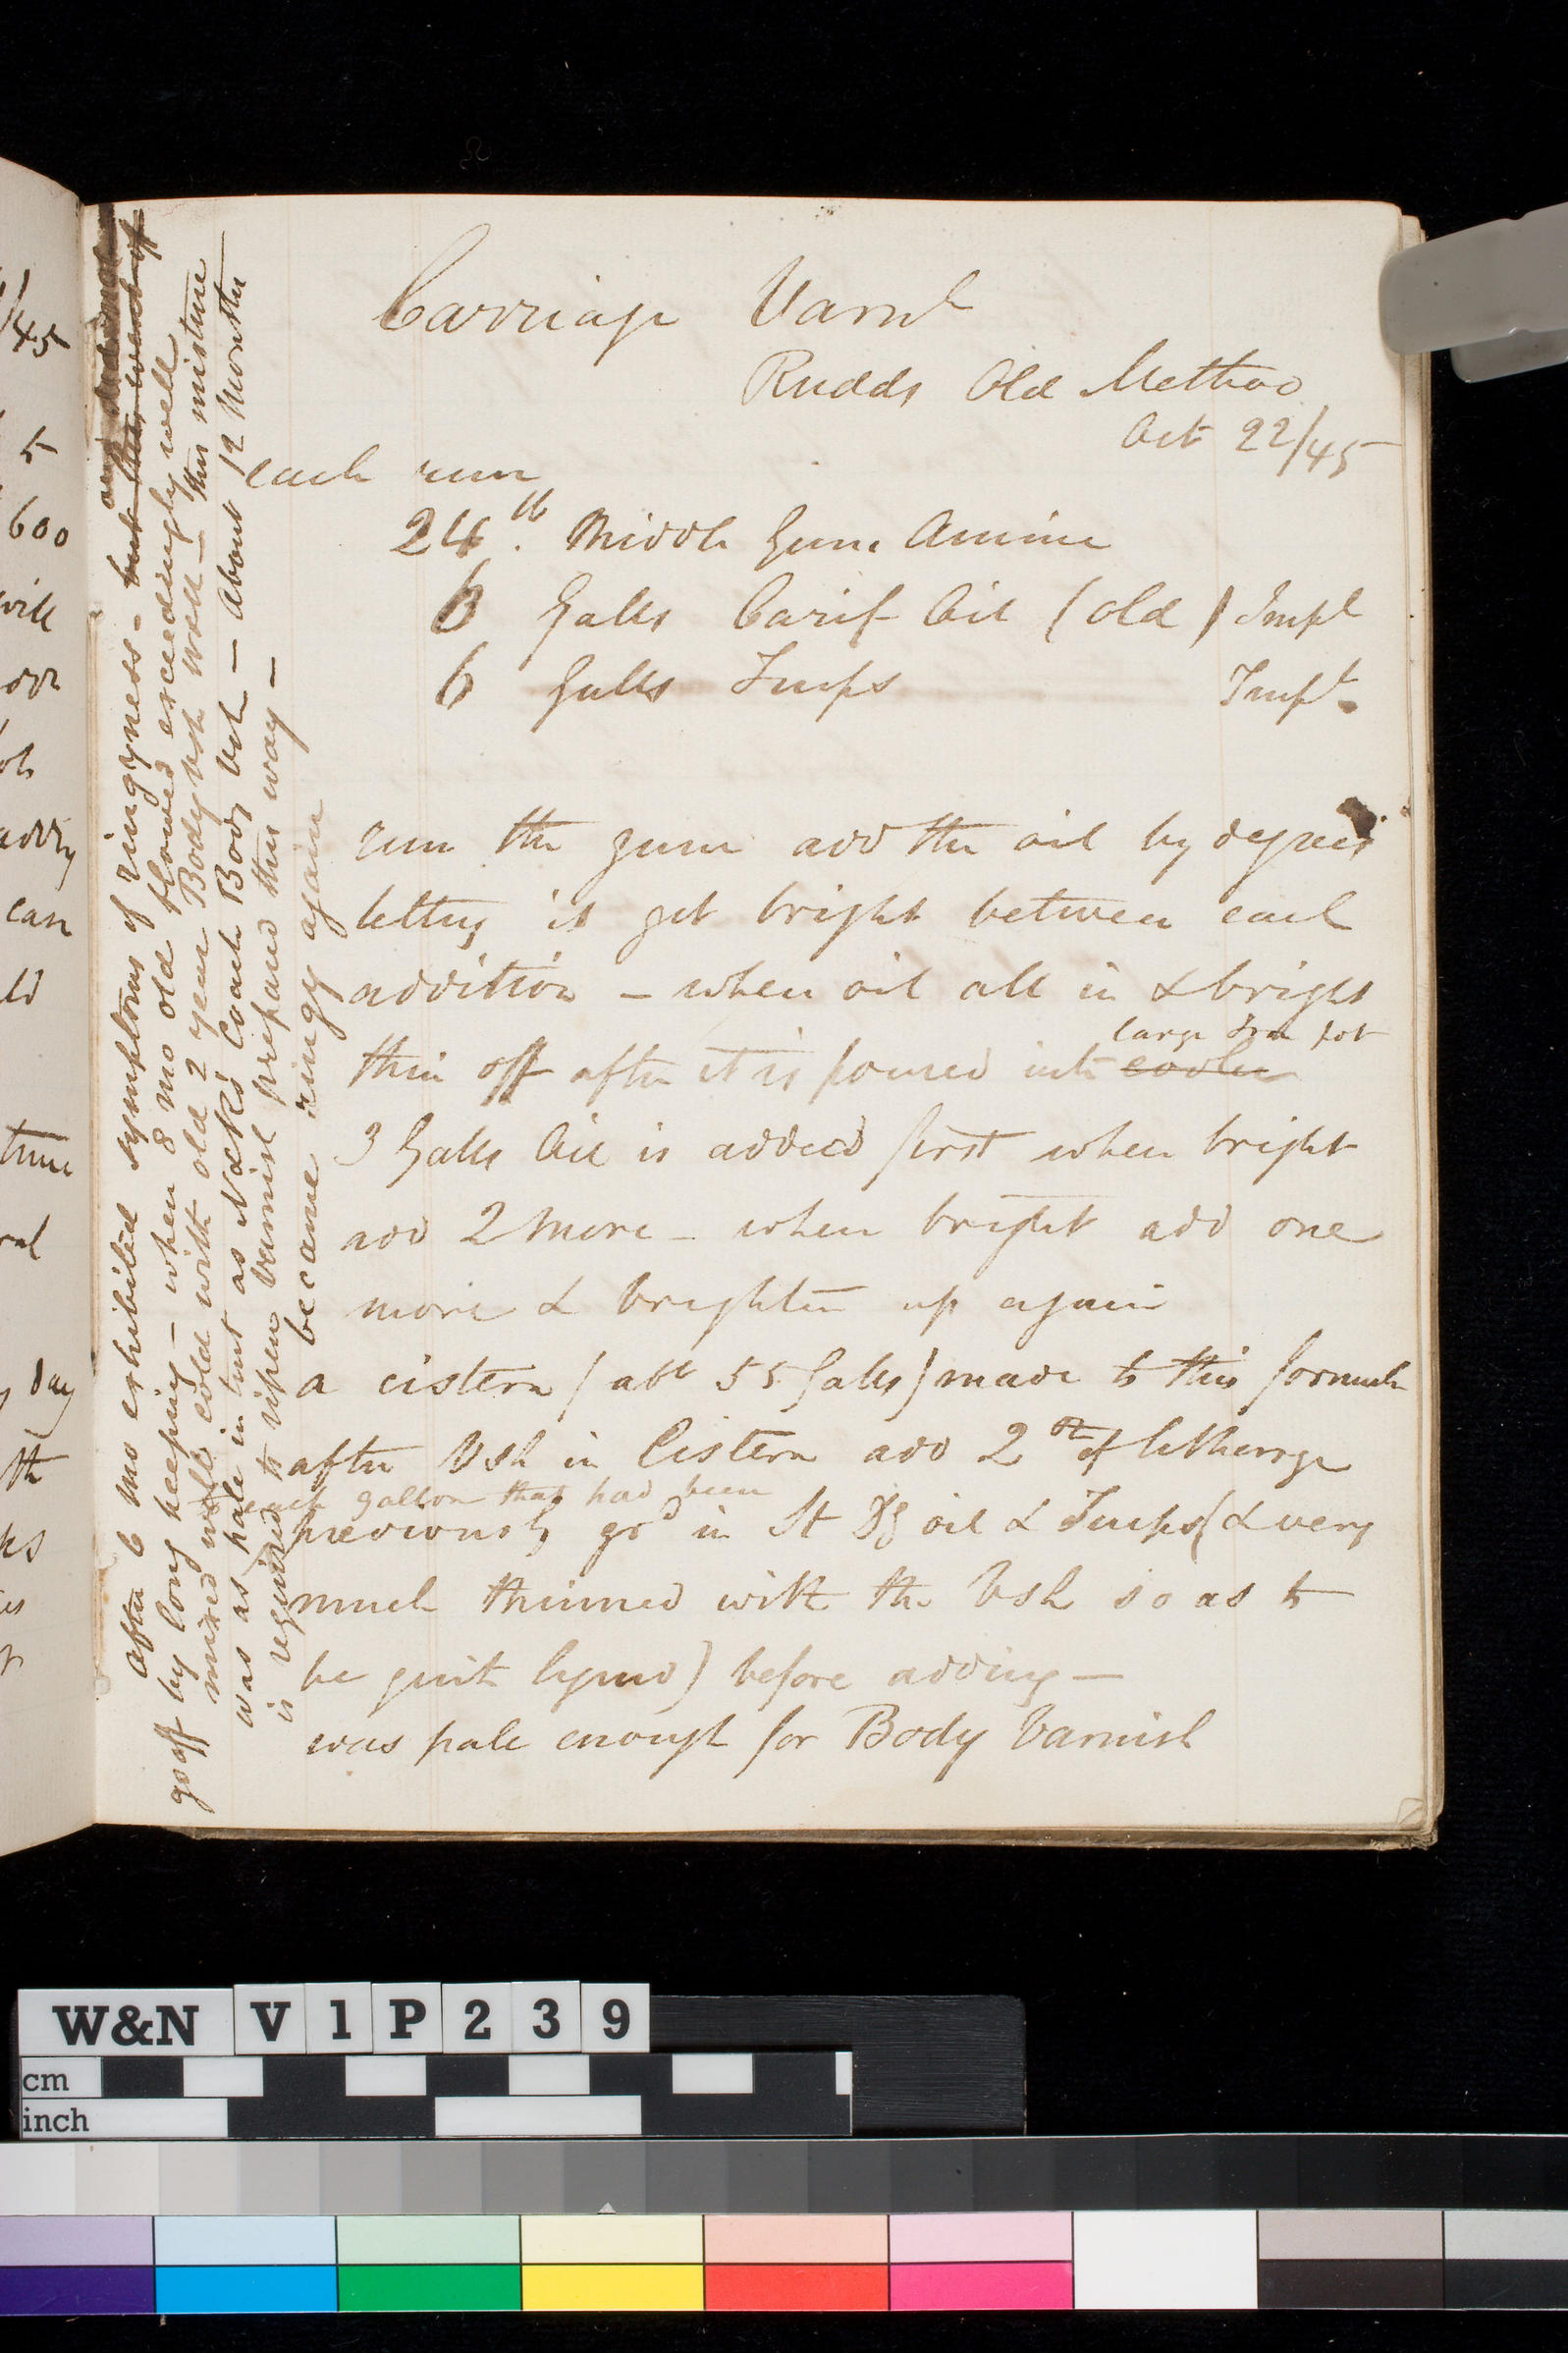 Carriage Varnh
Rudds Old Method
Oct 22/45
each run
24 lb. Middle Gum Animi
6 Galls Carif Oil (old) Impl
6 Galls Turps Impl.
run the gum add the oil by degrees
letting it get bright between each
addition – when oil all in & bright
large Iron pot
thin off after it is poured into cooler
3 Galls Oil is added first when bright
add 2 more – when bright add one
more & brighten up again
a cistern (abt 55 Galls) made to this formula
after Vsh in Cistern add 2 oz of litherge
each gallon that had been
previously grd in St oil & Turps (& very
much thinned with the Vsh so as to
be quite liquid) before adding –
was pale enough for Body Varnish
after 6 mo exhibited symptoms of ringyness – but this went off
go off by long keeping – when 8 mo old flowed exceedingly well
mixed cold with old 2 year Body vsh well – this mixture
was as pale in tint as Nd K's Coach Body Vsh – About 12 Months
is required to ripen varnish prepared this way –
became ringy again
/45
5
600
will
can
time
day
th
W&N V 1 P 2 3 9
cm
inch